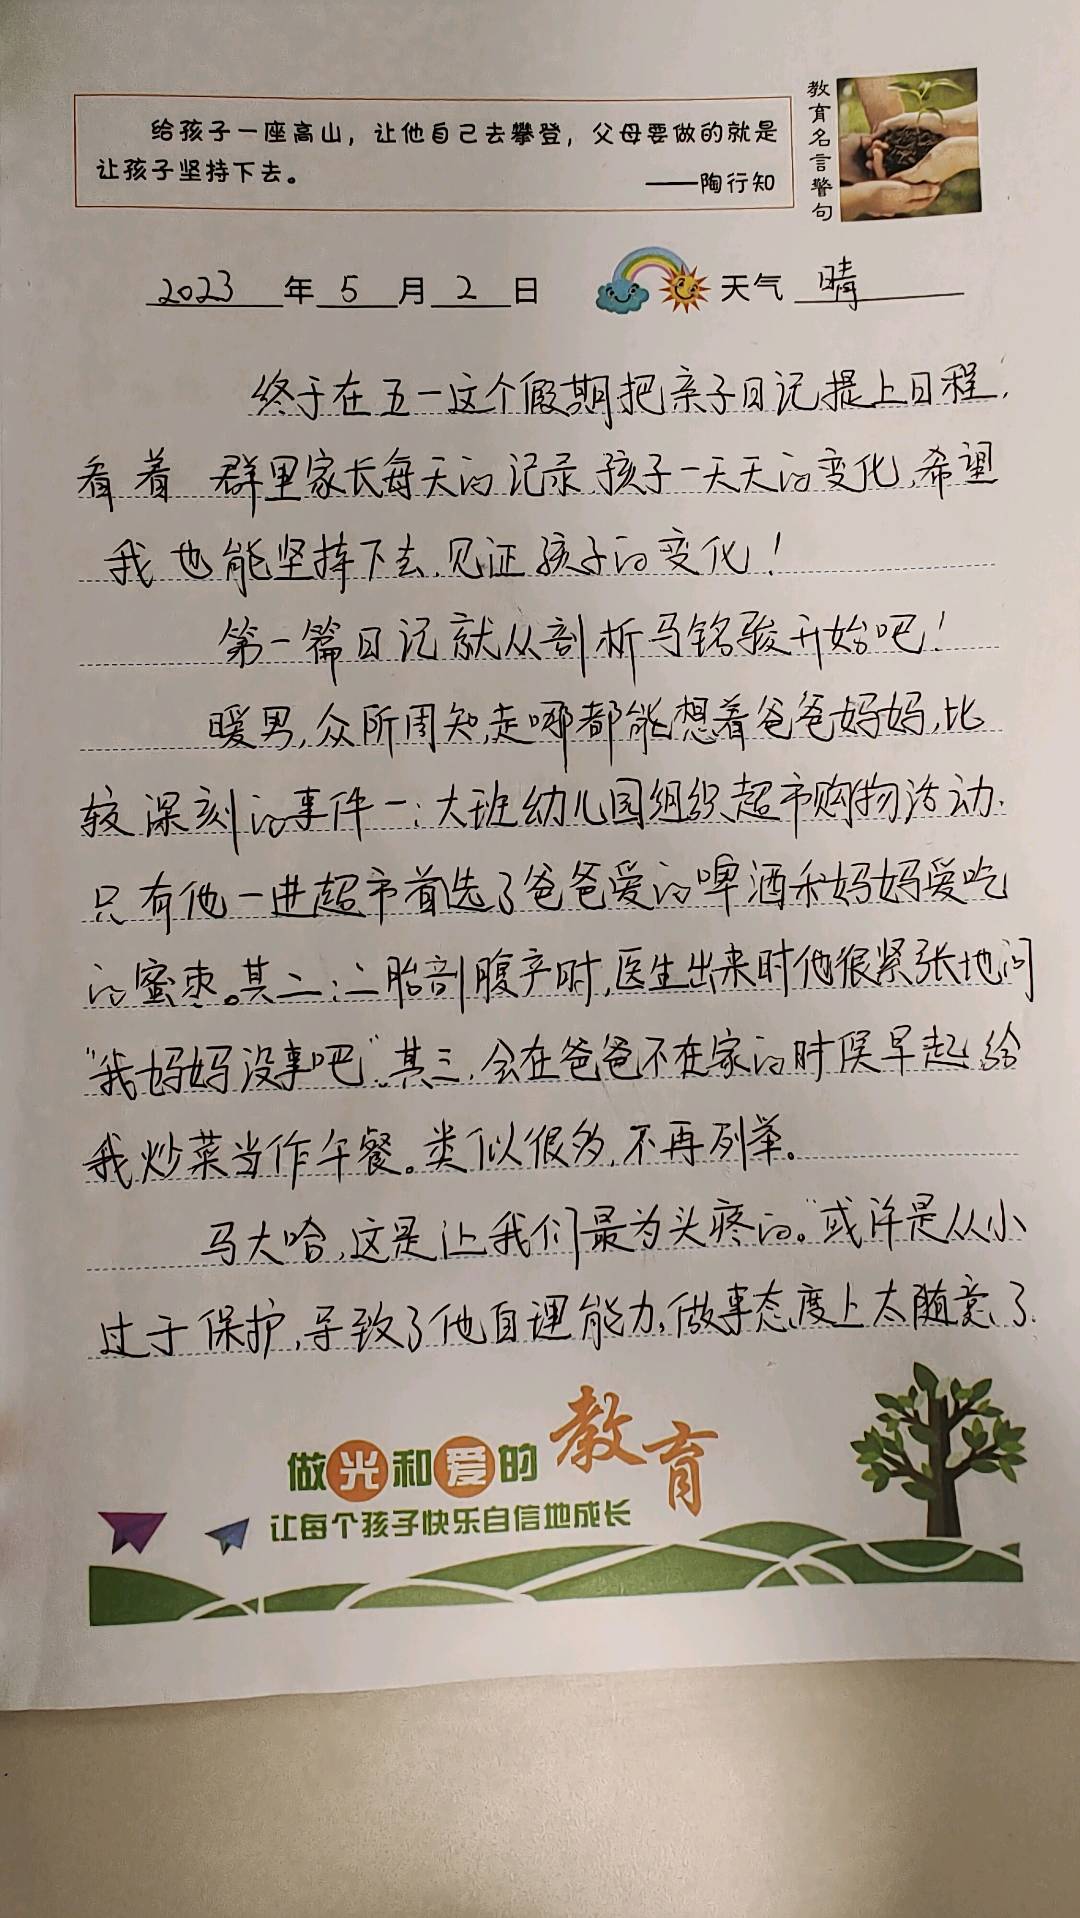 给孩子一座高山，让他自己去攀登，父母要做的就是
让孩子坚持下去。
——陶行知
教育名言警句
2023年5月2日 天气 晴
终于在五一这个假期把亲子日记提上日程，
看着 群里家长每天的记录，孩子一天天的变化，希望
我也能坚持下去，见证孩子的变化！
第一篇日记就从剖析马铭骏开始吧！
暖男，众所周知，走哪都能想着爸爸妈妈，比
较深刻的事件一：大班幼儿园组织超市购物活动.
只有他一进超市首选了爸爸爱的啤酒和妈妈爱吃
的蜜枣。其二：二胎剖腹产时，医生出来时他很紧张地问
“我妈妈没事吧”.其三，会在爸爸不在家的时候早起给
我炒菜当作午餐。类似很多，不再列举。
马大哈，这是让我们最为头疼的。“或许是从小
过于保护，导致了他自理能力，做事态度上太随意了.
做光和爱的教育
让每个孩子快乐自信地成长